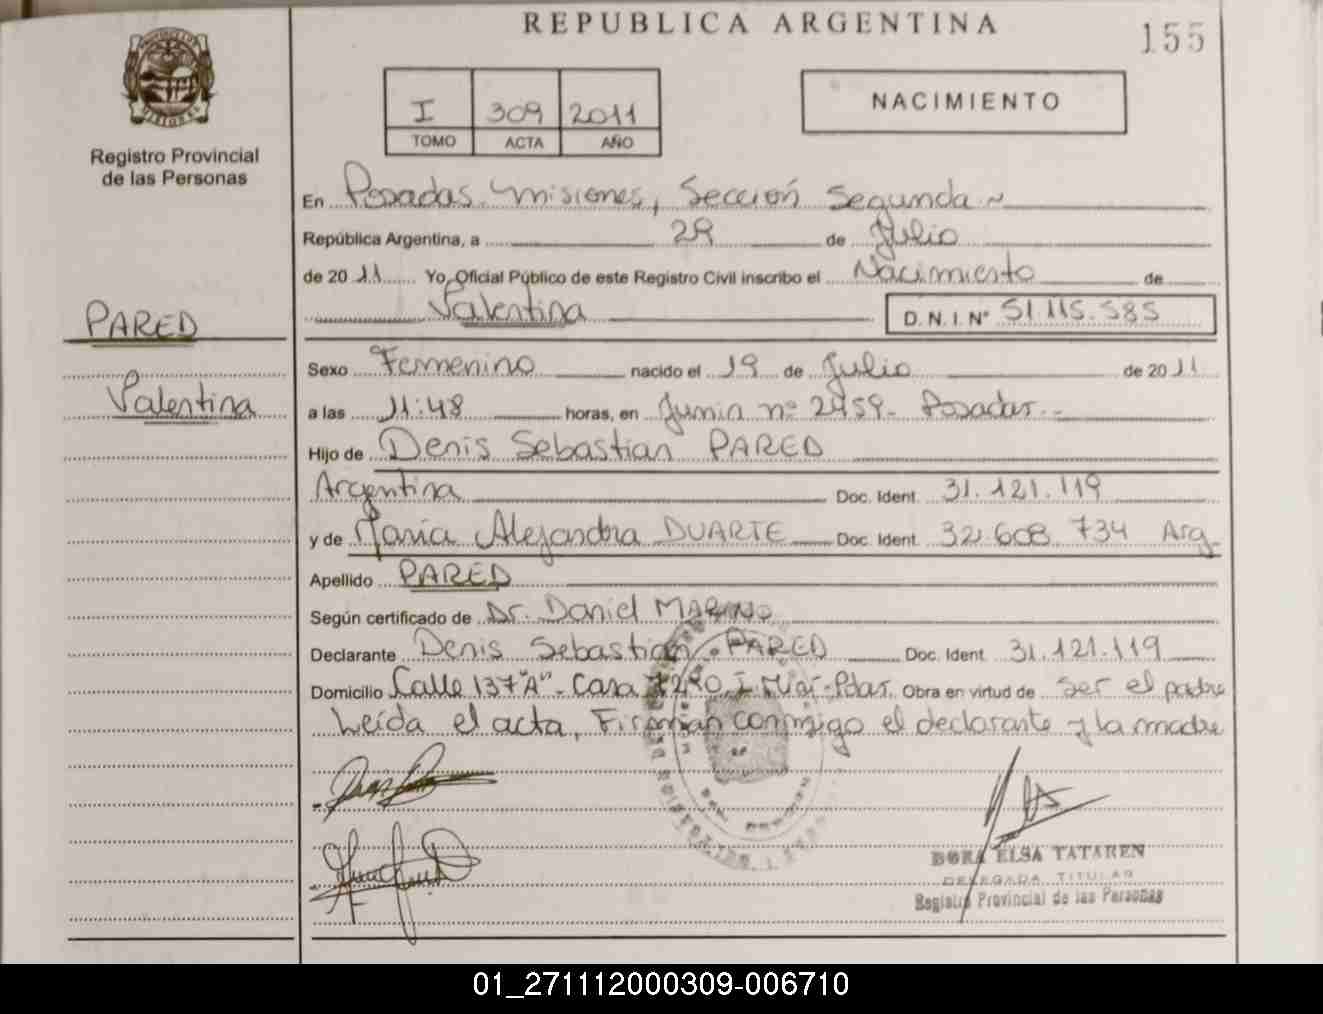 REPUBLICA ARGENTINA
155
I 309 2011
TOMO ACTA AÑO
NACIMIENTO
Registro Provincial
de las Personas
En Posadas Misiones, Sección Segunda
República Argentina, a 29 de Julio
de 2011 Yo, Oficial Público de este Registro Civil inscribo el Nacimiento de
Valentina D.N.I. Nº 51.115.585
PARED
Valentina
Sexo Femenino nacido el 19 de Julio de 2011
a las 11:48 horas, en Junin nº 2459- Posadas.-
Hijo de Denis Sebastian PARED
Argentina Doc. Ident. 31.121.119
y de María Alejandra DUARTE Doc. Ident. 32.608.734 Arg.
Apellido PARED
Según certificado de Dr. Daniel MARINO
Declarante Denis Sebastian PARED Doc. Ident. 31.121.119
Domicilio Calle 137"A"- Casa Obra en virtud de ser el padre
Leída el acta, Firman conmigo el declarante y la madre
ELSA TATAREN
DELEGADA TITULAR
Registro Provincial de las Personas
01_271112000309-006710